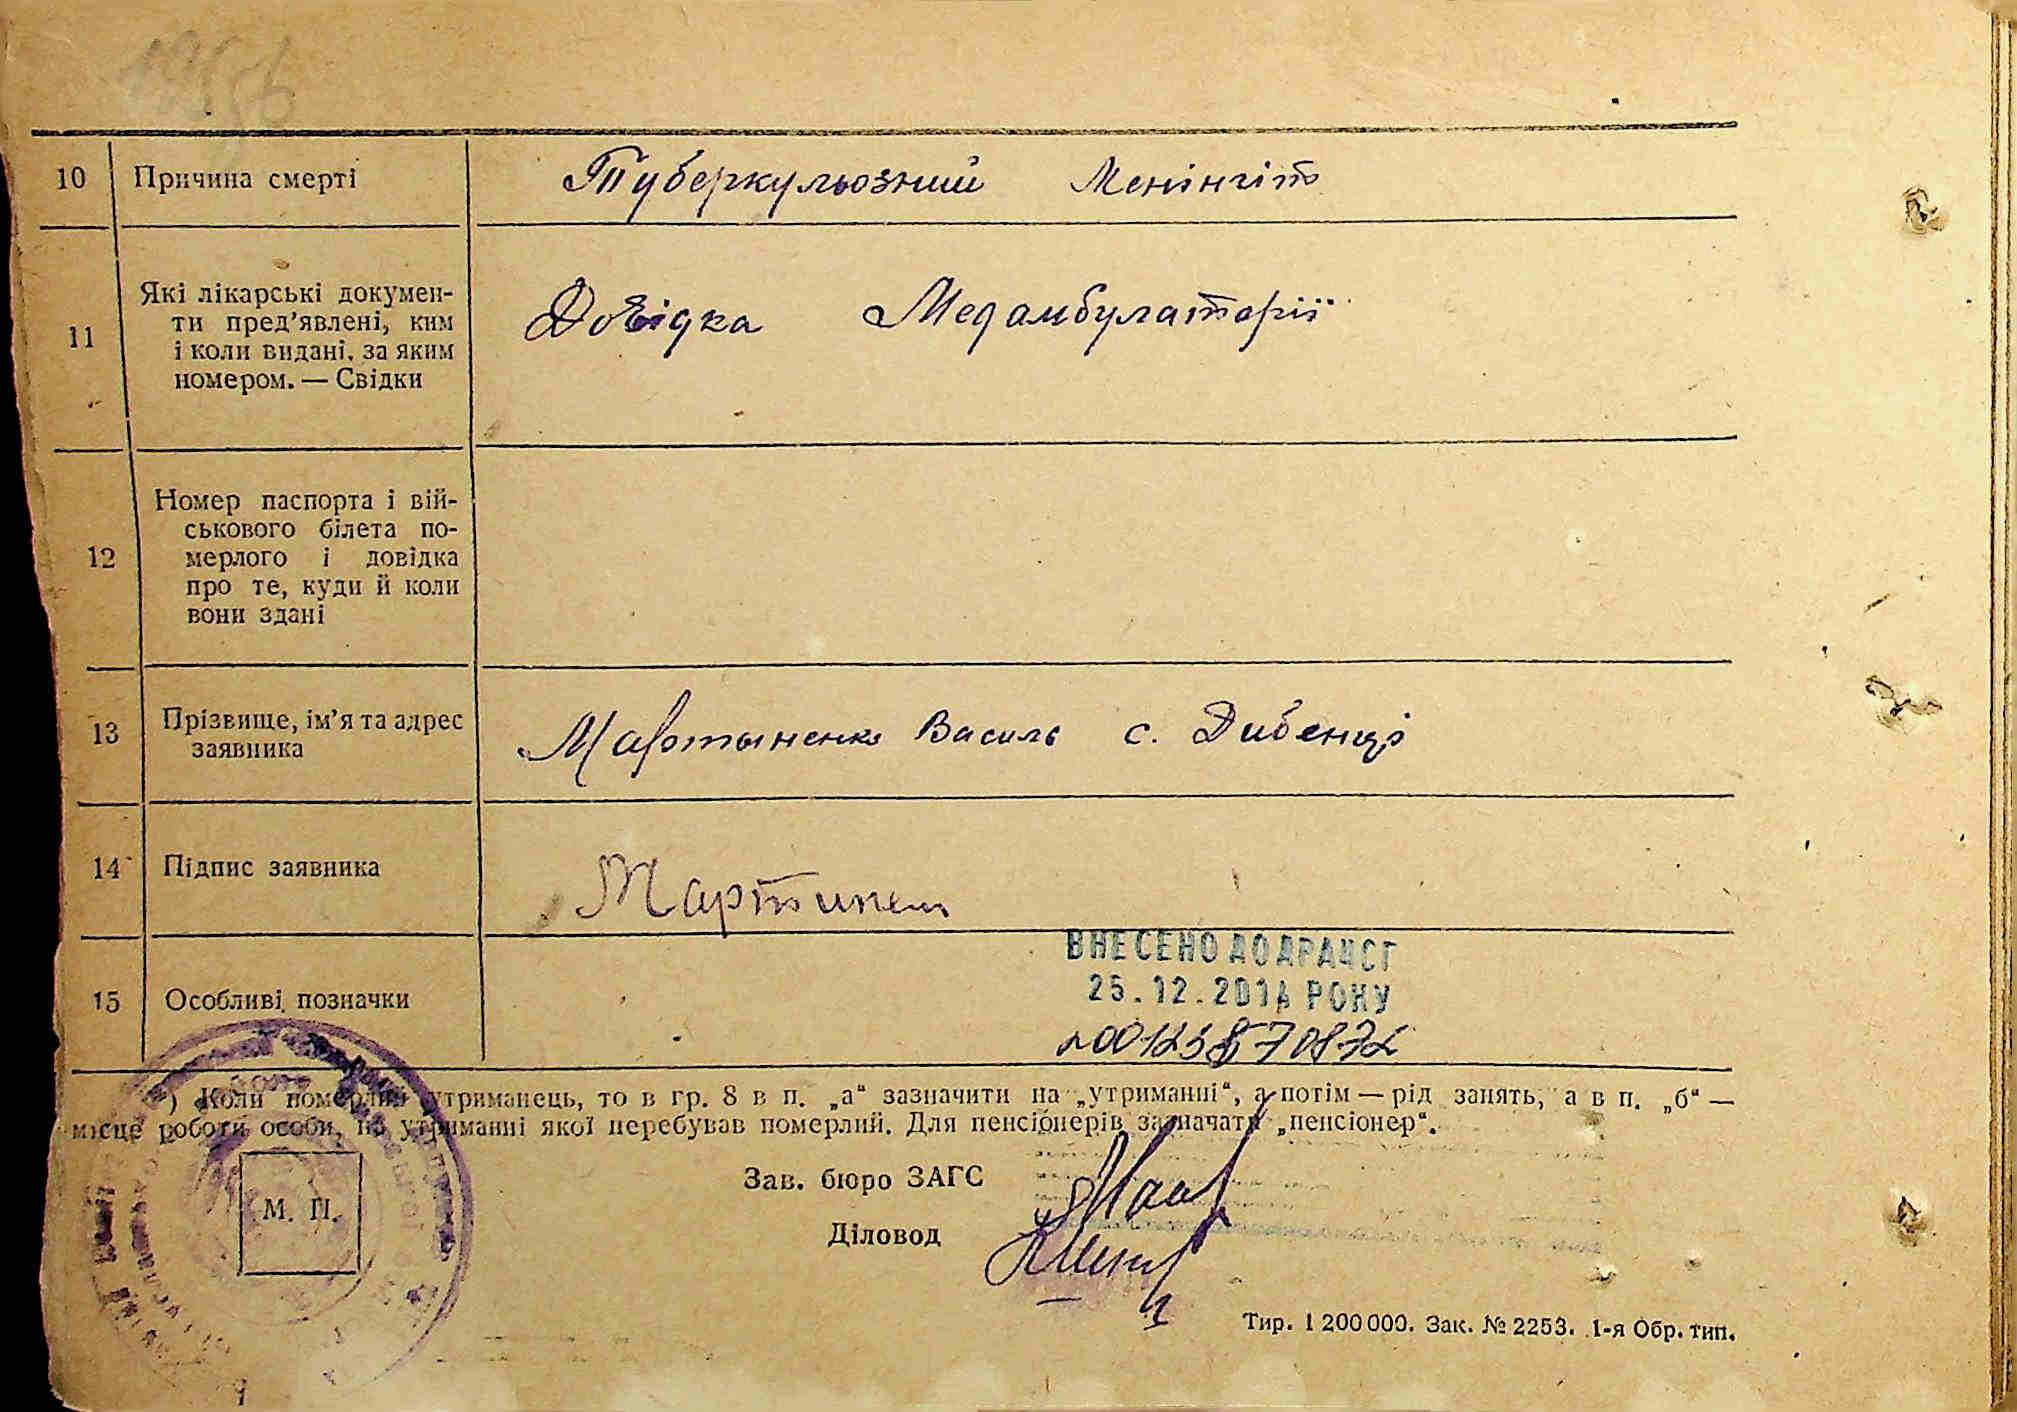 10 Причина смерті Туберкульозний Менінгіт
11 Які лікарські докумен-
ти пред'явлені, ким
і коли видані, за яким
номером. — Свідки
Довідка Медамбулаторії
12 Номер паспорта і вій-
ськового білета по-
мерлого і довідка
про те, куди й коли
вони здані
13 Прізвище, ім'я та адрес
заявника
Мартыненко Василь с. Дибенці
14 Підпис заявника
15 Особливі позначки
ВНЕСЕНО ДО ДРАЦСГ
25.12.2014 РОКУ
) Коли померлий утриманець, то в гр. 8 в п. „а“ зазначити на „утриманні“, а потім — рід занять, а в п. „б“ —
місце роботи особи, на утриманні якої перебував померлий. Для пенсіонерів зазначати „пенсіонер“.
Зав. бюро ЗАГС
Діловод
М. П.
Тир. 1 200 000. Зак. № 2253. 1-я Обр. тип.